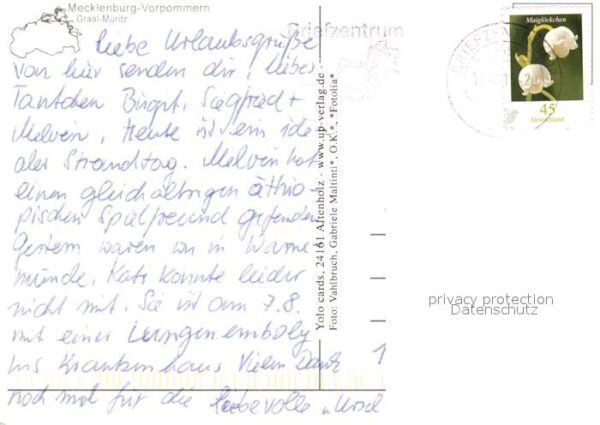 Mecklenburg-Vorpommern
Graal-Müritz
Liebe Urlaubsgrüße
von hier senden dir, liebes
Tantchen Birgit, Siegfried +
Melvin, Heute ist ein ide
aler Strandtag. Melvin hat
einen gleichaltrigen äthio
pischen Spielfreund gefunden
Gestern waren wir in Warne
münde. Kats konnte leider
nicht mit. Sie ist am 7.8.
mit einer Lungenemboly
ins Krankenhaus Vielen Dank
noch mal für die liebevolle
Yolo cards, 24161 Altenholz - www.up-verlag.de
Foto: Vahlbruch, Gabriele Maltinti*, O.K.*, *Fotolia*
Briefzentrum
BRIEFZ
Maiglöckchen
45
Deutschland
1
privacy protection
Datenschutz